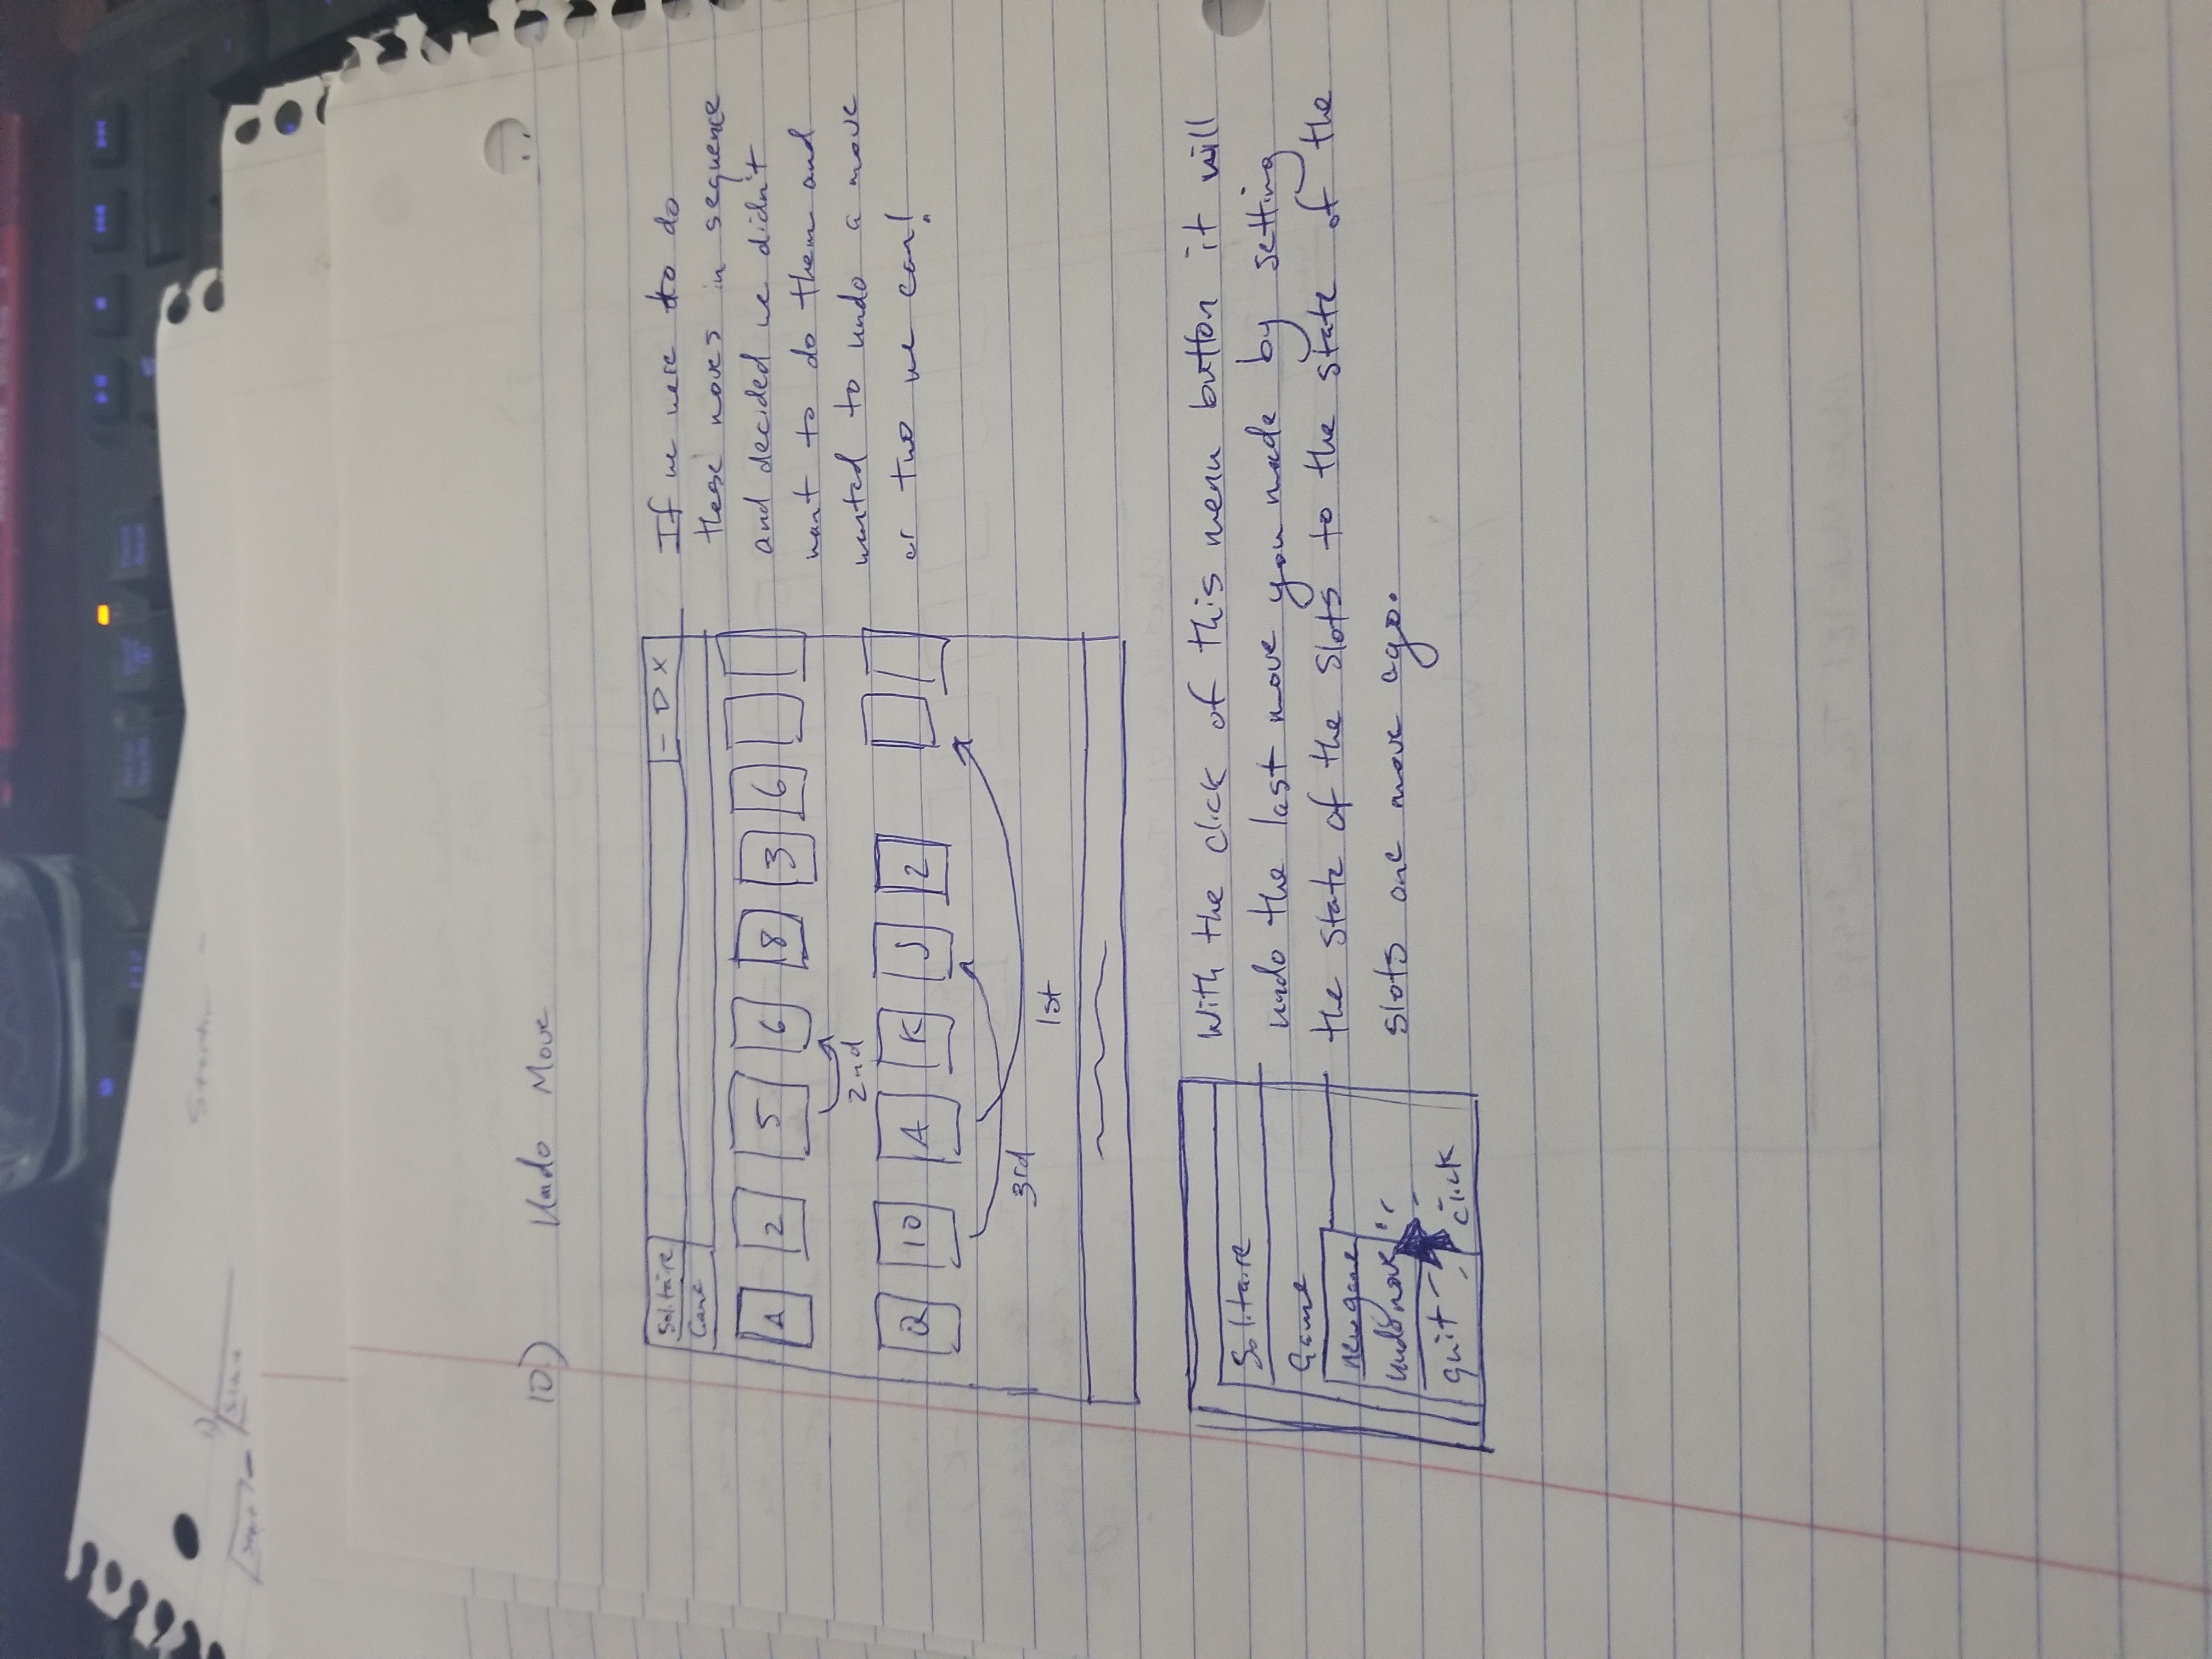 10.) Undo Move
Solitaire - D X
Game
A 2 5 6 8 3 6
2nd
Q 10 A K J 2
3rd
1st
If we were to do
these moves in sequence
and decided we didn't
want to do them and
wanted to undo a move
or two we can!
Solitaire
Game
new game
undo move
quit
click
With the click of this menu button it will
undo the last move you made by setting
the state of the slots to the state of the
slots one move ago.